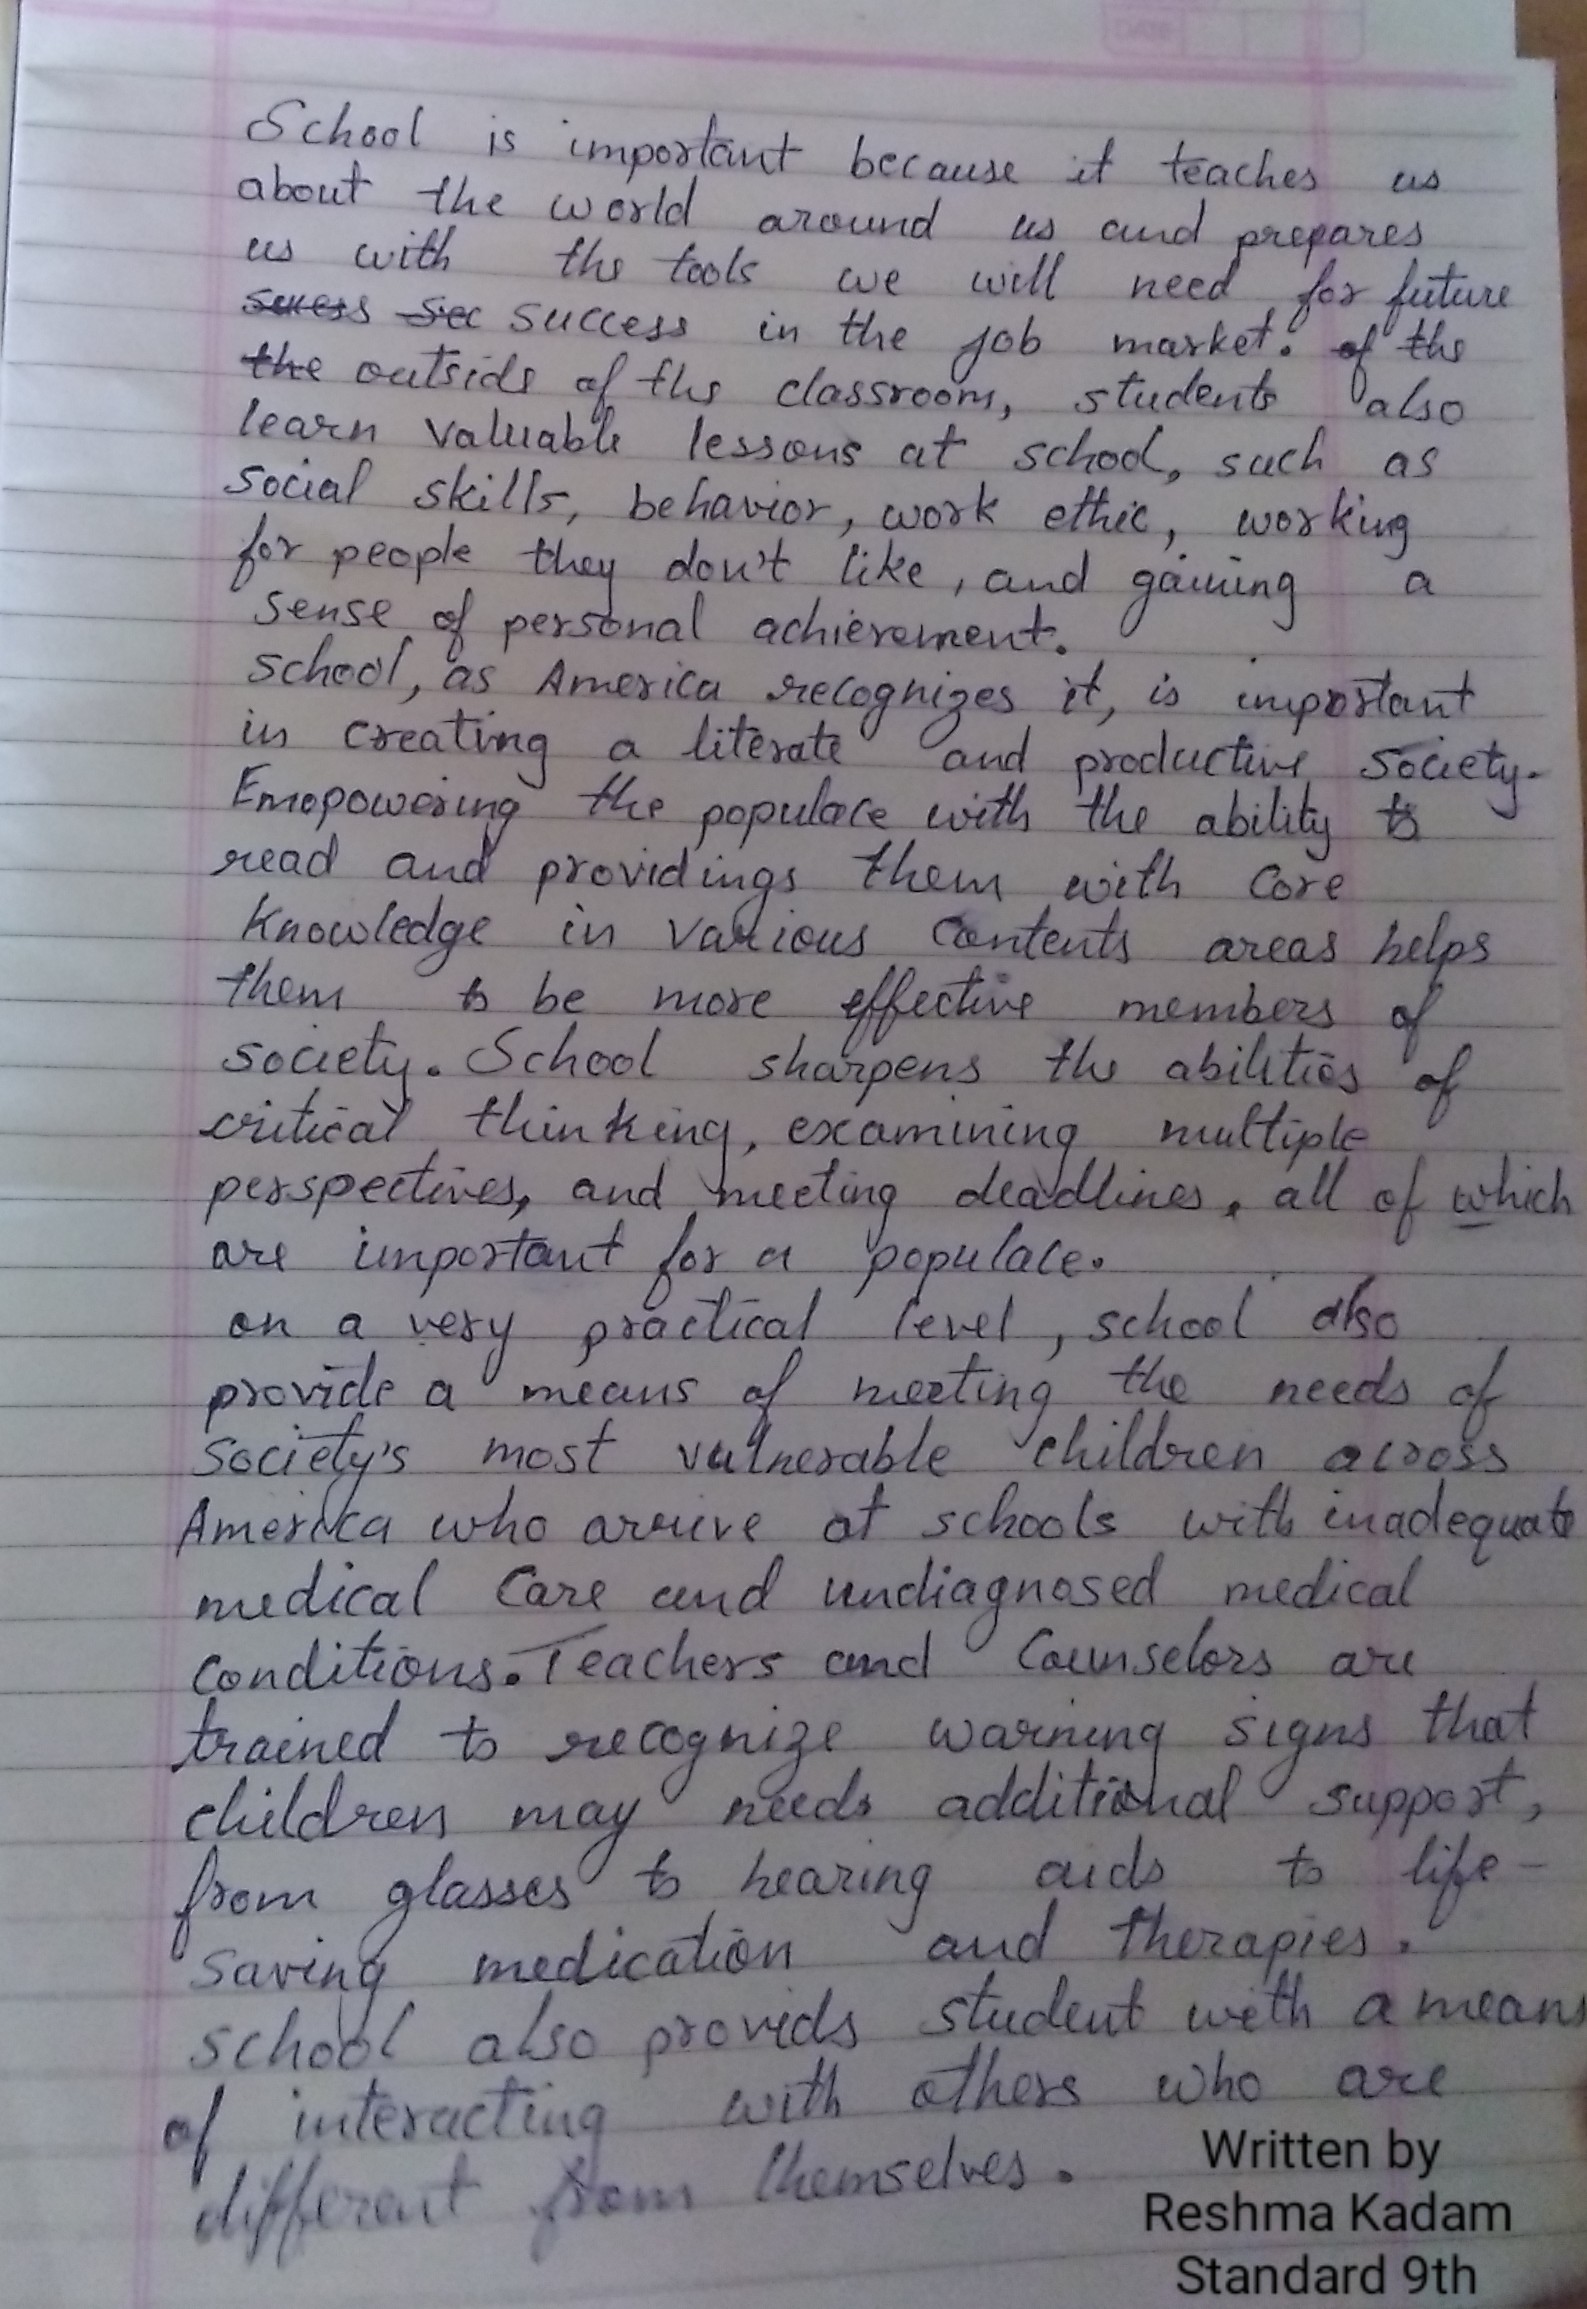 DATE
School is important because it teaches us
about the world around us and prepares
us with the tools we will need for future
sucess sec success in the job market. of the
the outside of the classroom, students also
learn valuable lessons at school, such as
social skills, behavior, work ethic, working
for people they don't like, and gaining a
sense of personal achievement.
school, as America recognizes it, is important
in creating a literate and productive society.
Emopowering the populace with the ability to
read and providings them with core
knowledge in various contents areas helps
them to be more effective members of
society. School sharpens the abilities of
critical thinking, examining multiple
perspectives, and meeting deadlines, all of which
are important for a populace.
on a very practical level, school also
provide a means of meeting the needs of
society's most vulnerable children across
America who arrive at schools with inadequate
medical care and undiagnosed medical
conditions. Teachers and Counselors are
trained to recognize warning signs that
children may needs additional support,
from glasses to hearing aids to life-
saving medication and therapies.
school also provids student with a means
of interacting with others who are
different from themselves.
Written by
Reshma Kadam
Standard 9th